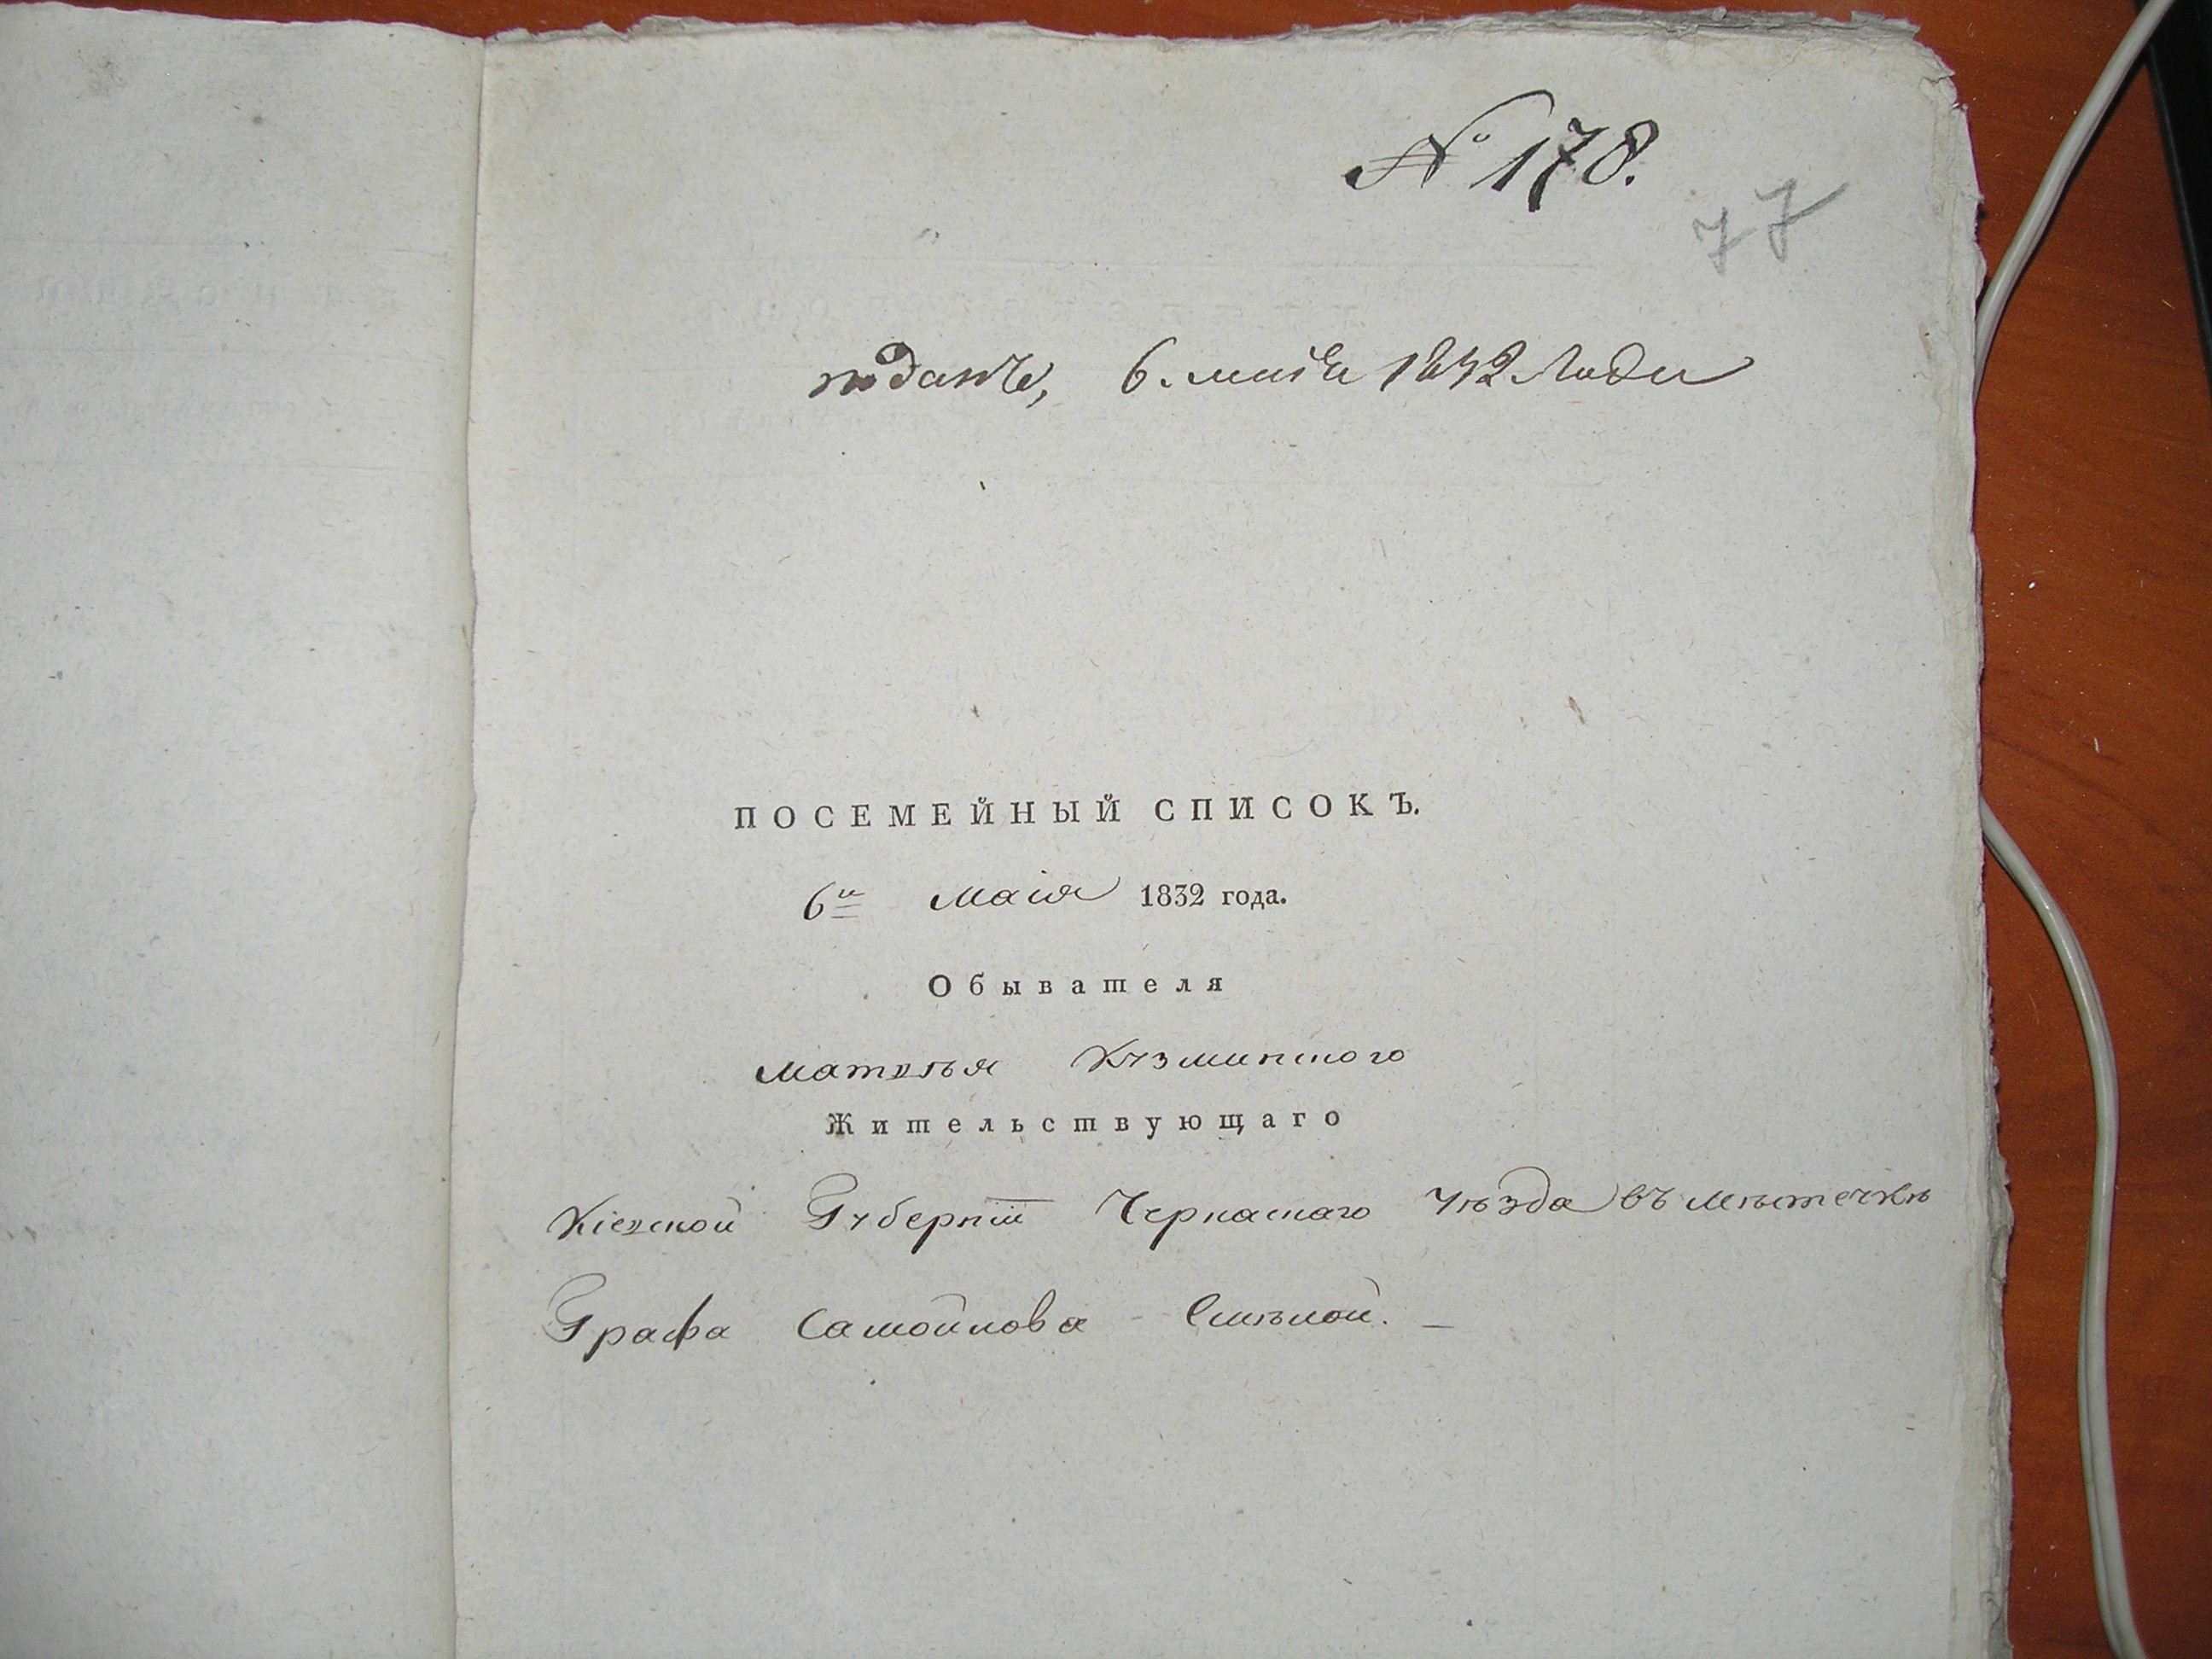 № 178.
77
поданъ, 6. маія 1832 года
ПОСЕМЕЙНЫЙ СПИСОКЪ.
6го Маія 1832 года.
Обывателя
Матвѣя Кузминского
Жительствующаго
Кіевской Губерніи Черкаскаго Уѣзда въ мѣстечкѣ
Графа Самойлова Смѣлой. —